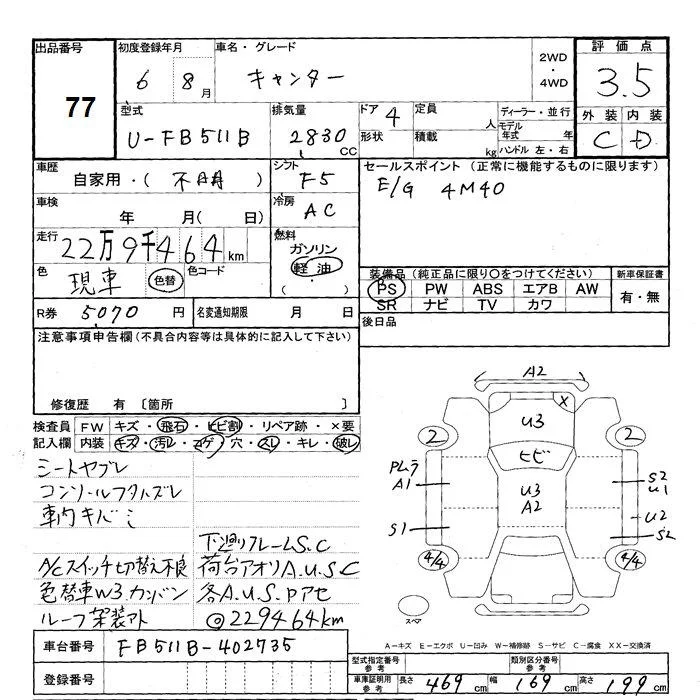 出品番号 初度登録年月 車名・グレード 2WD・4WD 評価点
77 6 8月 キャンター 3.5
型式 排気量 ドア 4 定員 人 ディーラー・並行 外装 内装
U-FB511B 2830 CC 形状 積載 kg モデル年式 年 ハンドル 左・右 C D
車歴 シフト セールスポイント (正常に機能するものに限ります)
自家用・( 不明 ) F5 E/G 4M40
車検 年 月( 日) 冷房 AC
走行 22万9千464km 燃料 ガソリン
軽油
( ・ )
色 現車 色替 色コード
装備品 (純正品に限り○をつけてください) 新車保証書
PS PW ABS エアB AW 有・無
SR ナビ TV カワ
R券 5070 円 名変通知期限 月 日 後日品
注意事項申告欄 (不具合内容等は具体的に記入して下さい)
修復歴 有 〔箇所 〕
検査員 FW キズ・飛石・ヒビ割・リペア跡・×要
記入欄 内装 キズ・汚レ・コゲ・穴・スレ・キレ・破レ
シートヤブレ
コンソールフタハズレ
車内キバミ
下廻りフレームS.C
A/Cスイッチ切替え不良 荷台アオリA.U.S.C
色替車W3.カンバン 各A.U.S.Pアセ
ルーフ架装アト ◎229464km
車台番号 FB511B-402735
登録番号
A2
X
U3
2 2
ヒビ
PAムラ
A1
U3
A2
S2
U1
U2
S1 S2
4/4 4/4
スペア
A-キズ E-エクボ U-凹み W-補修跡 S-サビ C-腐食 XX-交換済
型式指定番号 参考 類別区分番号 参考
車庫証明用 参考 長さ 469 cm 幅 169 cm 高さ 199 cm